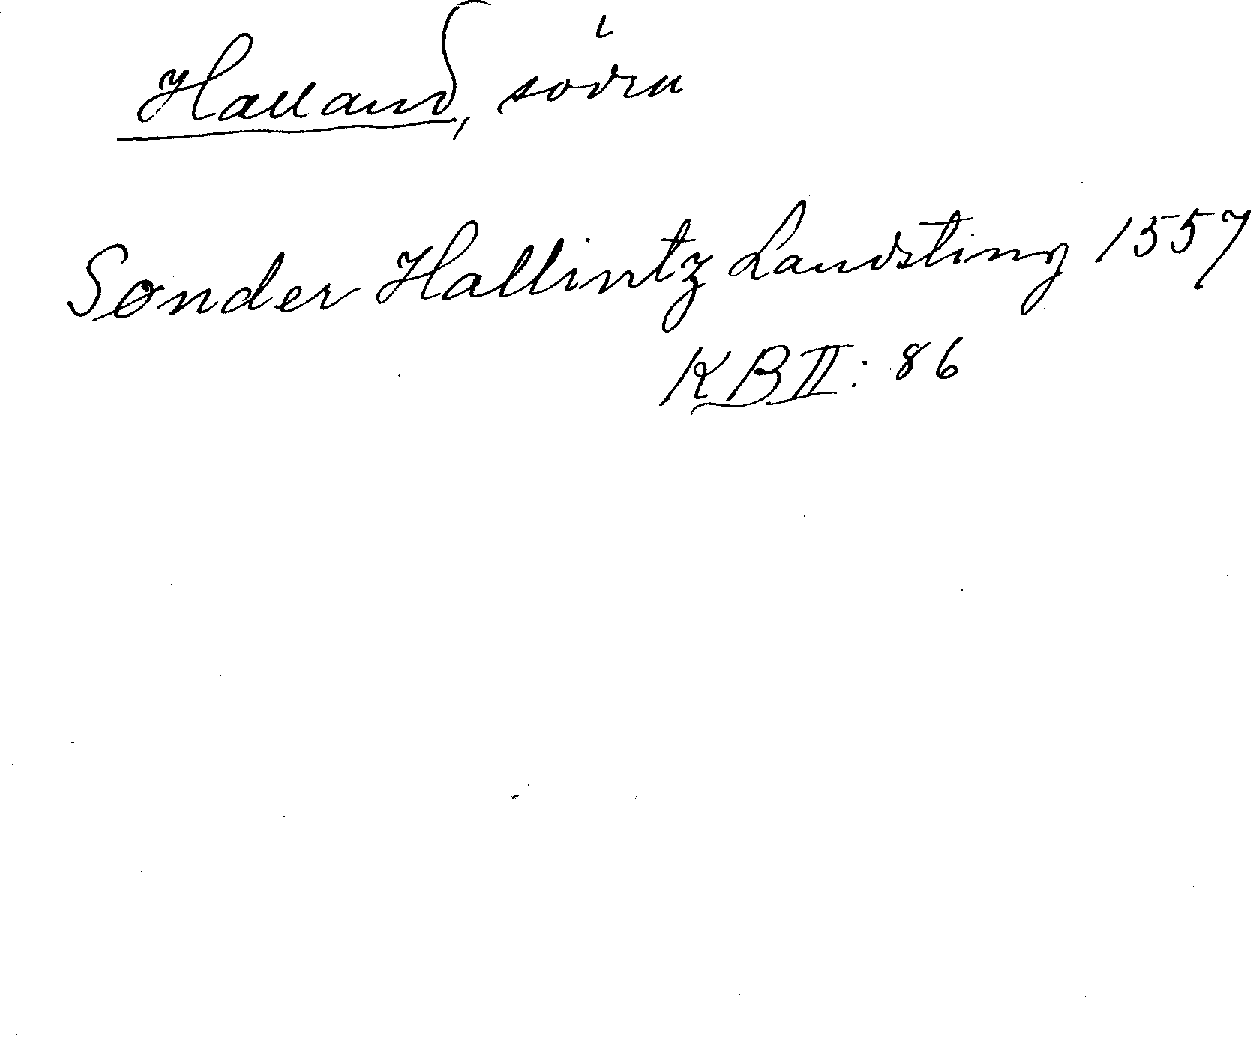 Halland, södra
Sønder Hallintz Landsting 1557
KB II: 86